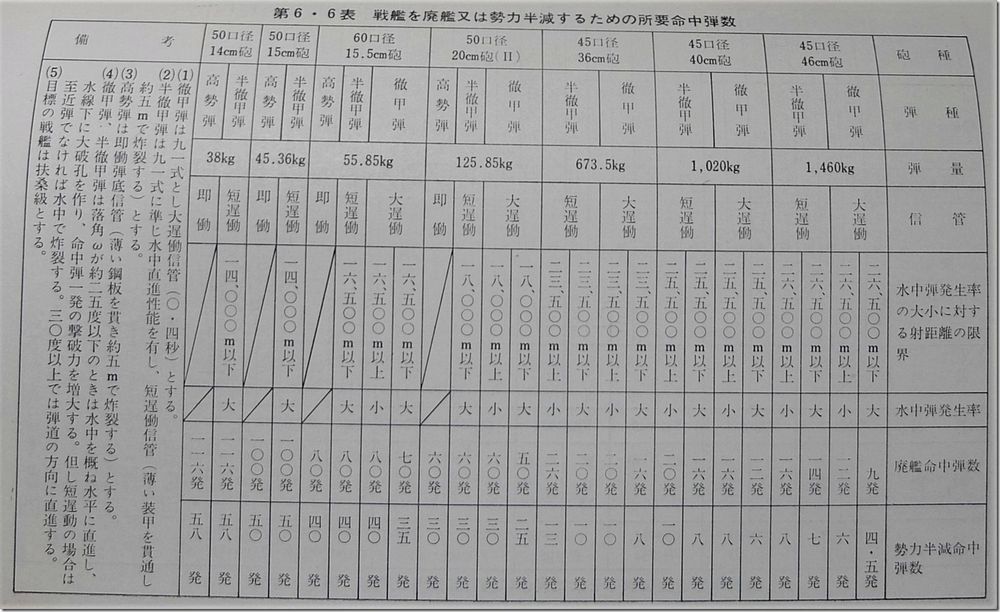 第6・6表 戦艦を廃艦又は勢力半減するための所要命中弾数
砲種
45口径
46cm砲
45口径
40cm砲
45口径
36cm砲
50口径
20cm砲(II)
60口径
15.5cm砲
50口径
15cm砲
50口径
14cm砲
備考
弾種
徹甲弾
半徹甲弾
徹甲弾
半徹甲弾
徹甲弾
半徹甲弾
徹甲弾
半徹甲弾
高勢弾
徹甲弾
半徹甲弾
高勢弾
半徹甲弾
高勢弾
半徹甲弾
高勢弾
弾量
1,460kg
1,020kg
673.5kg
125.85kg
55.85kg
45.36kg
38kg
信管
大遅働
短遅働
大遅働
短遅働
大遅働
短遅働
大遅働
短遅働
即働
大遅働
短遅働
即働
短遅働
即働
短遅働
即働
水中弾発生率
の大小に対す
る射距離の限
界
二六、五〇〇m以下
二六、五〇〇m以上
二六、五〇〇m以下
二六、五〇〇m以上
二五、五〇〇m以下
二五、五〇〇m以上
二五、五〇〇m以下
二五、五〇〇m以上
二三、五〇〇m以下
二三、五〇〇m以上
二三、五〇〇m以下
二三、五〇〇m以上
一八、〇〇〇m以下
一八、〇〇〇m以上
一八、〇〇〇m以下
一六、五〇〇m以下
一六、五〇〇m以上
一六、五〇〇m以下
一四、〇〇〇m以下
一四、〇〇〇m以下
水中弾発生率
大
小
大
小
大
小
大
小
大
小
大
小
大
小
大
大
小
大
大
大
廃艦命中弾数
九発
一二発
一四発
一六発
一二発
一六発
一六発
二〇発
一六発
二〇発
二〇発
二六発
五〇発
六〇発
六〇発
六〇発
七〇発
八〇発
八〇発
八〇発
一〇〇発
一〇〇発
一一六発
一一六発
勢力半減命中
弾数
四・五発
六発
七発
八発
六発
八発
八発
一〇発
八発
一〇発
一〇発
一三発
二五発
三〇発
三〇発
三〇発
三五発
四〇発
四〇発
四〇発
五〇発
五〇発
五八発
五八発
(1)徹甲弾は九一式とし大遅働信管(〇・四秒)とする。
(2)半徹甲弾は九一式に準じ水中直進性能を有し、短遅働信管(薄い装甲を貫通し
約五mで炸裂する)とする。
(3)高勢弾は即働弾底信管(薄い鋼板を貫き約五mで炸裂する)とする。
(4)徹甲弾、半徹甲弾は落角ωが約二五度以下のときは水中を概ね水平に直進し、
水線下に大破孔を作り、命中弾一発の撃破力を増大する。但し短遅動の場合は
至近弾でなければ水中で炸裂する。三〇度以上では弾道の方向に直進する。
(5)目標の戦艦は扶桑級とする。